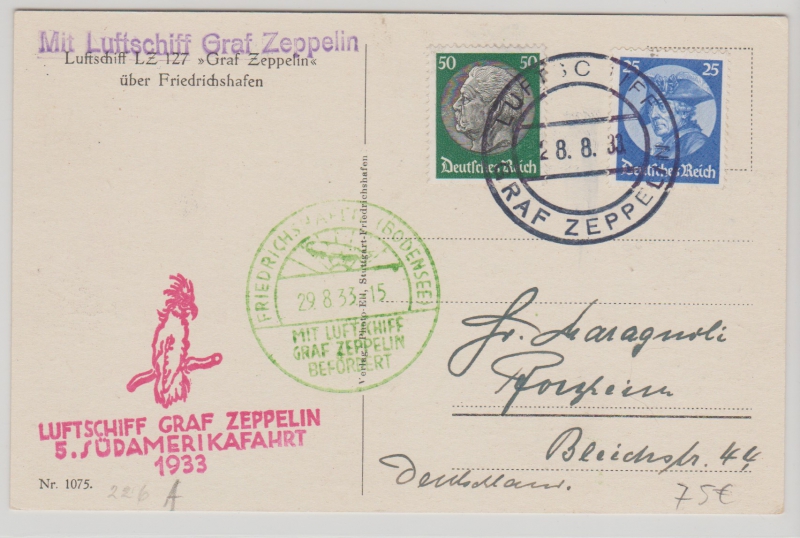 Mit Luftschiff Graf Zeppelin
Luftschiff LZ 127 »Graf Zeppelin«
über Friedrichshafen
50 50
Deutsches Reich
25 25
Deutsches Reich
LUFTSCHIFF
28.8.33
GRAF ZEPPELIN
FRIEDRICHSHAFEN (BODENSEE)
29.8.33-15
MIT LUFTSCHIFF
GRAF ZEPPELIN
BEFÖRDERT
Verlag Photo-Eil, Stuttgart-Friedrichshafen
LUFTSCHIFF GRAF ZEPPELIN
5. SÜDAMERIKAFAHRT
1933
Nr. 1075.
226 A
Maragnoli
Pforzheim
Bleichstr. 44
Deutschland.
75€